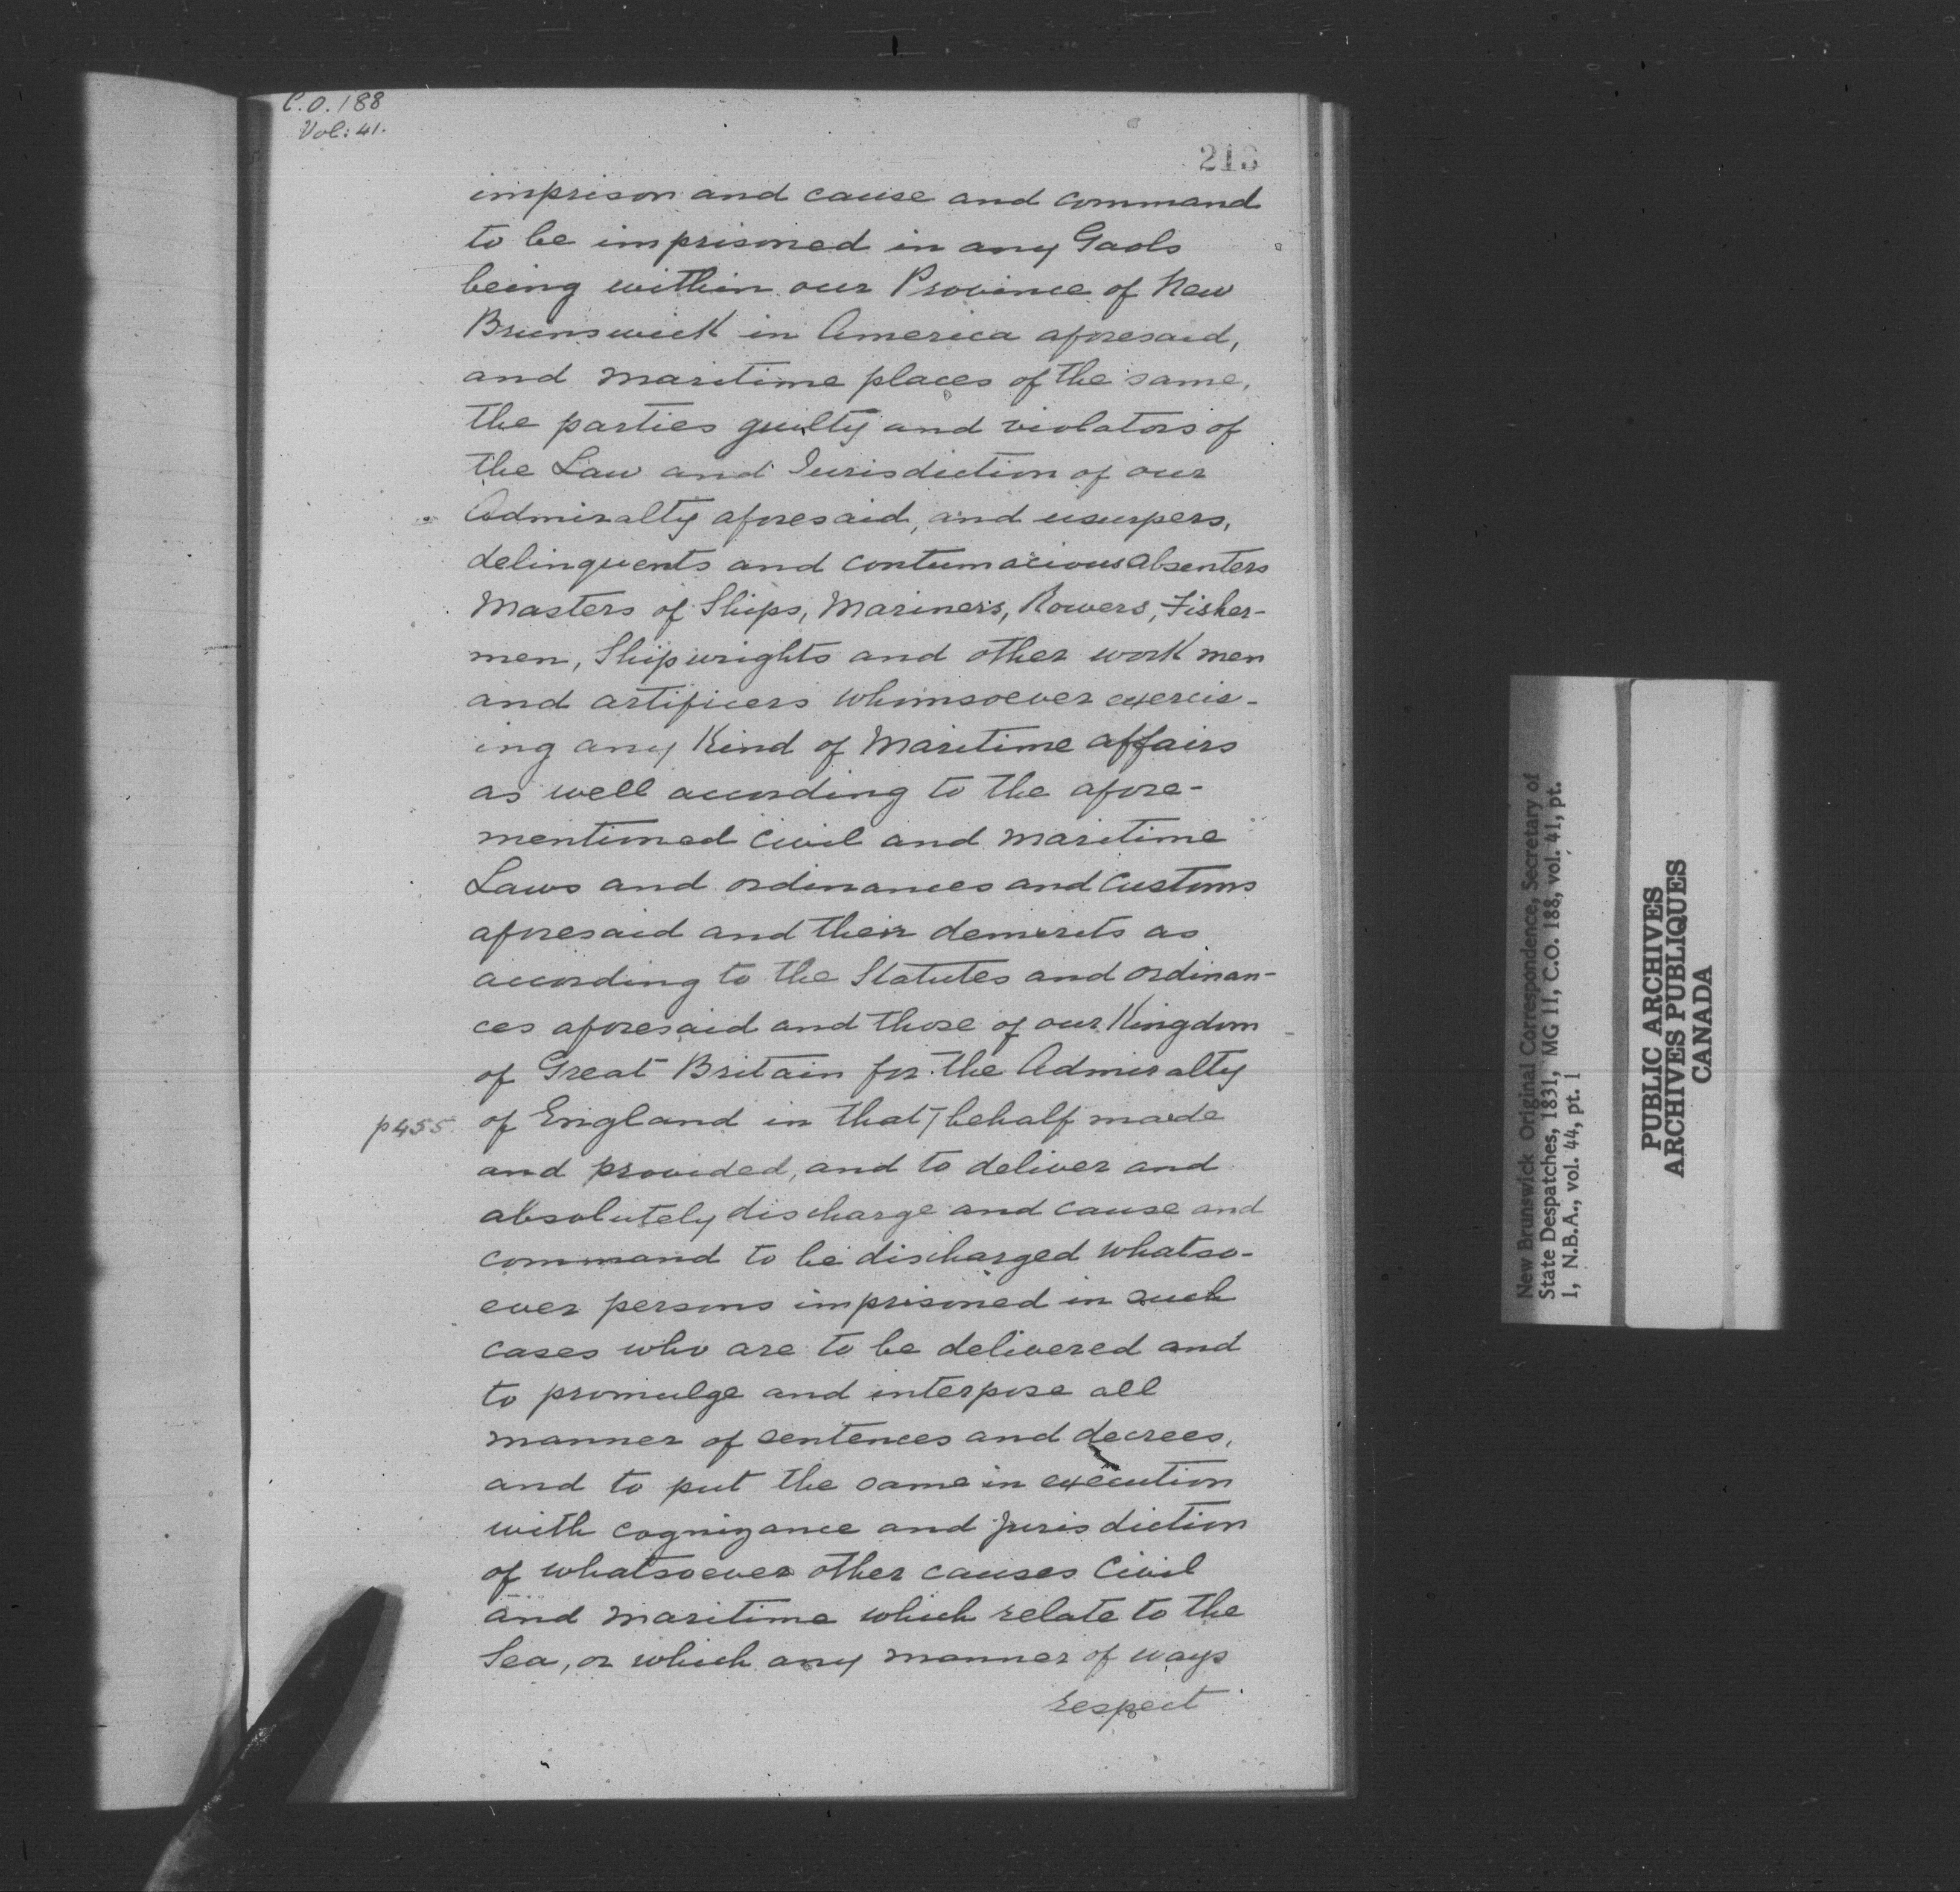 C.O. 188
Vol: 41.
213
imprison and cause and command
to be imprisoned in any Gaols
being within our Province of New
Brunswick in America aforesaid,
and maritime places of the same,
the parties guilty and violators of
the Law and Jurisdiction of our
Admiralty aforesaid, and usurpers,
delinquents and contumacious absenters
Masters of Ships, Mariners, Rowers, Fisher-
men, Shipwrights and other work men
and artificers whomsoever exercis-
ing any Kind of Maritime affairs
as well according to the afore-
mentioned civil and maritime
Laws and ordinances and customs
aforesaid and their demerits as
according to the Statutes and ordinan-
ces aforesaid and those of our Kingdom
of Great Britain for the Admiralty
p455 of England in that / behalf made
and provided, and to deliver and
absolutely discharge and cause and
command to be discharged whatso-
ever persons imprisoned in such
cases who are to be delivered and
to promulge and interpose all
manner of sentences and decrees,
and to put the same in execution
with cognizance and jurisdiction
of whatsoever other causes Civil
and maritime which relate to the
Sea, or which any manner of ways
respect
New Brunswick Original Correspondence, Secretary of
State Despatches, 1831, MG 11, C.O. 188, vol. 41, pt.
1, N.B.A., vol. 44, pt. 1
PUBLIC ARCHIVES
ARCHIVES PUBLIQUES
CANADA